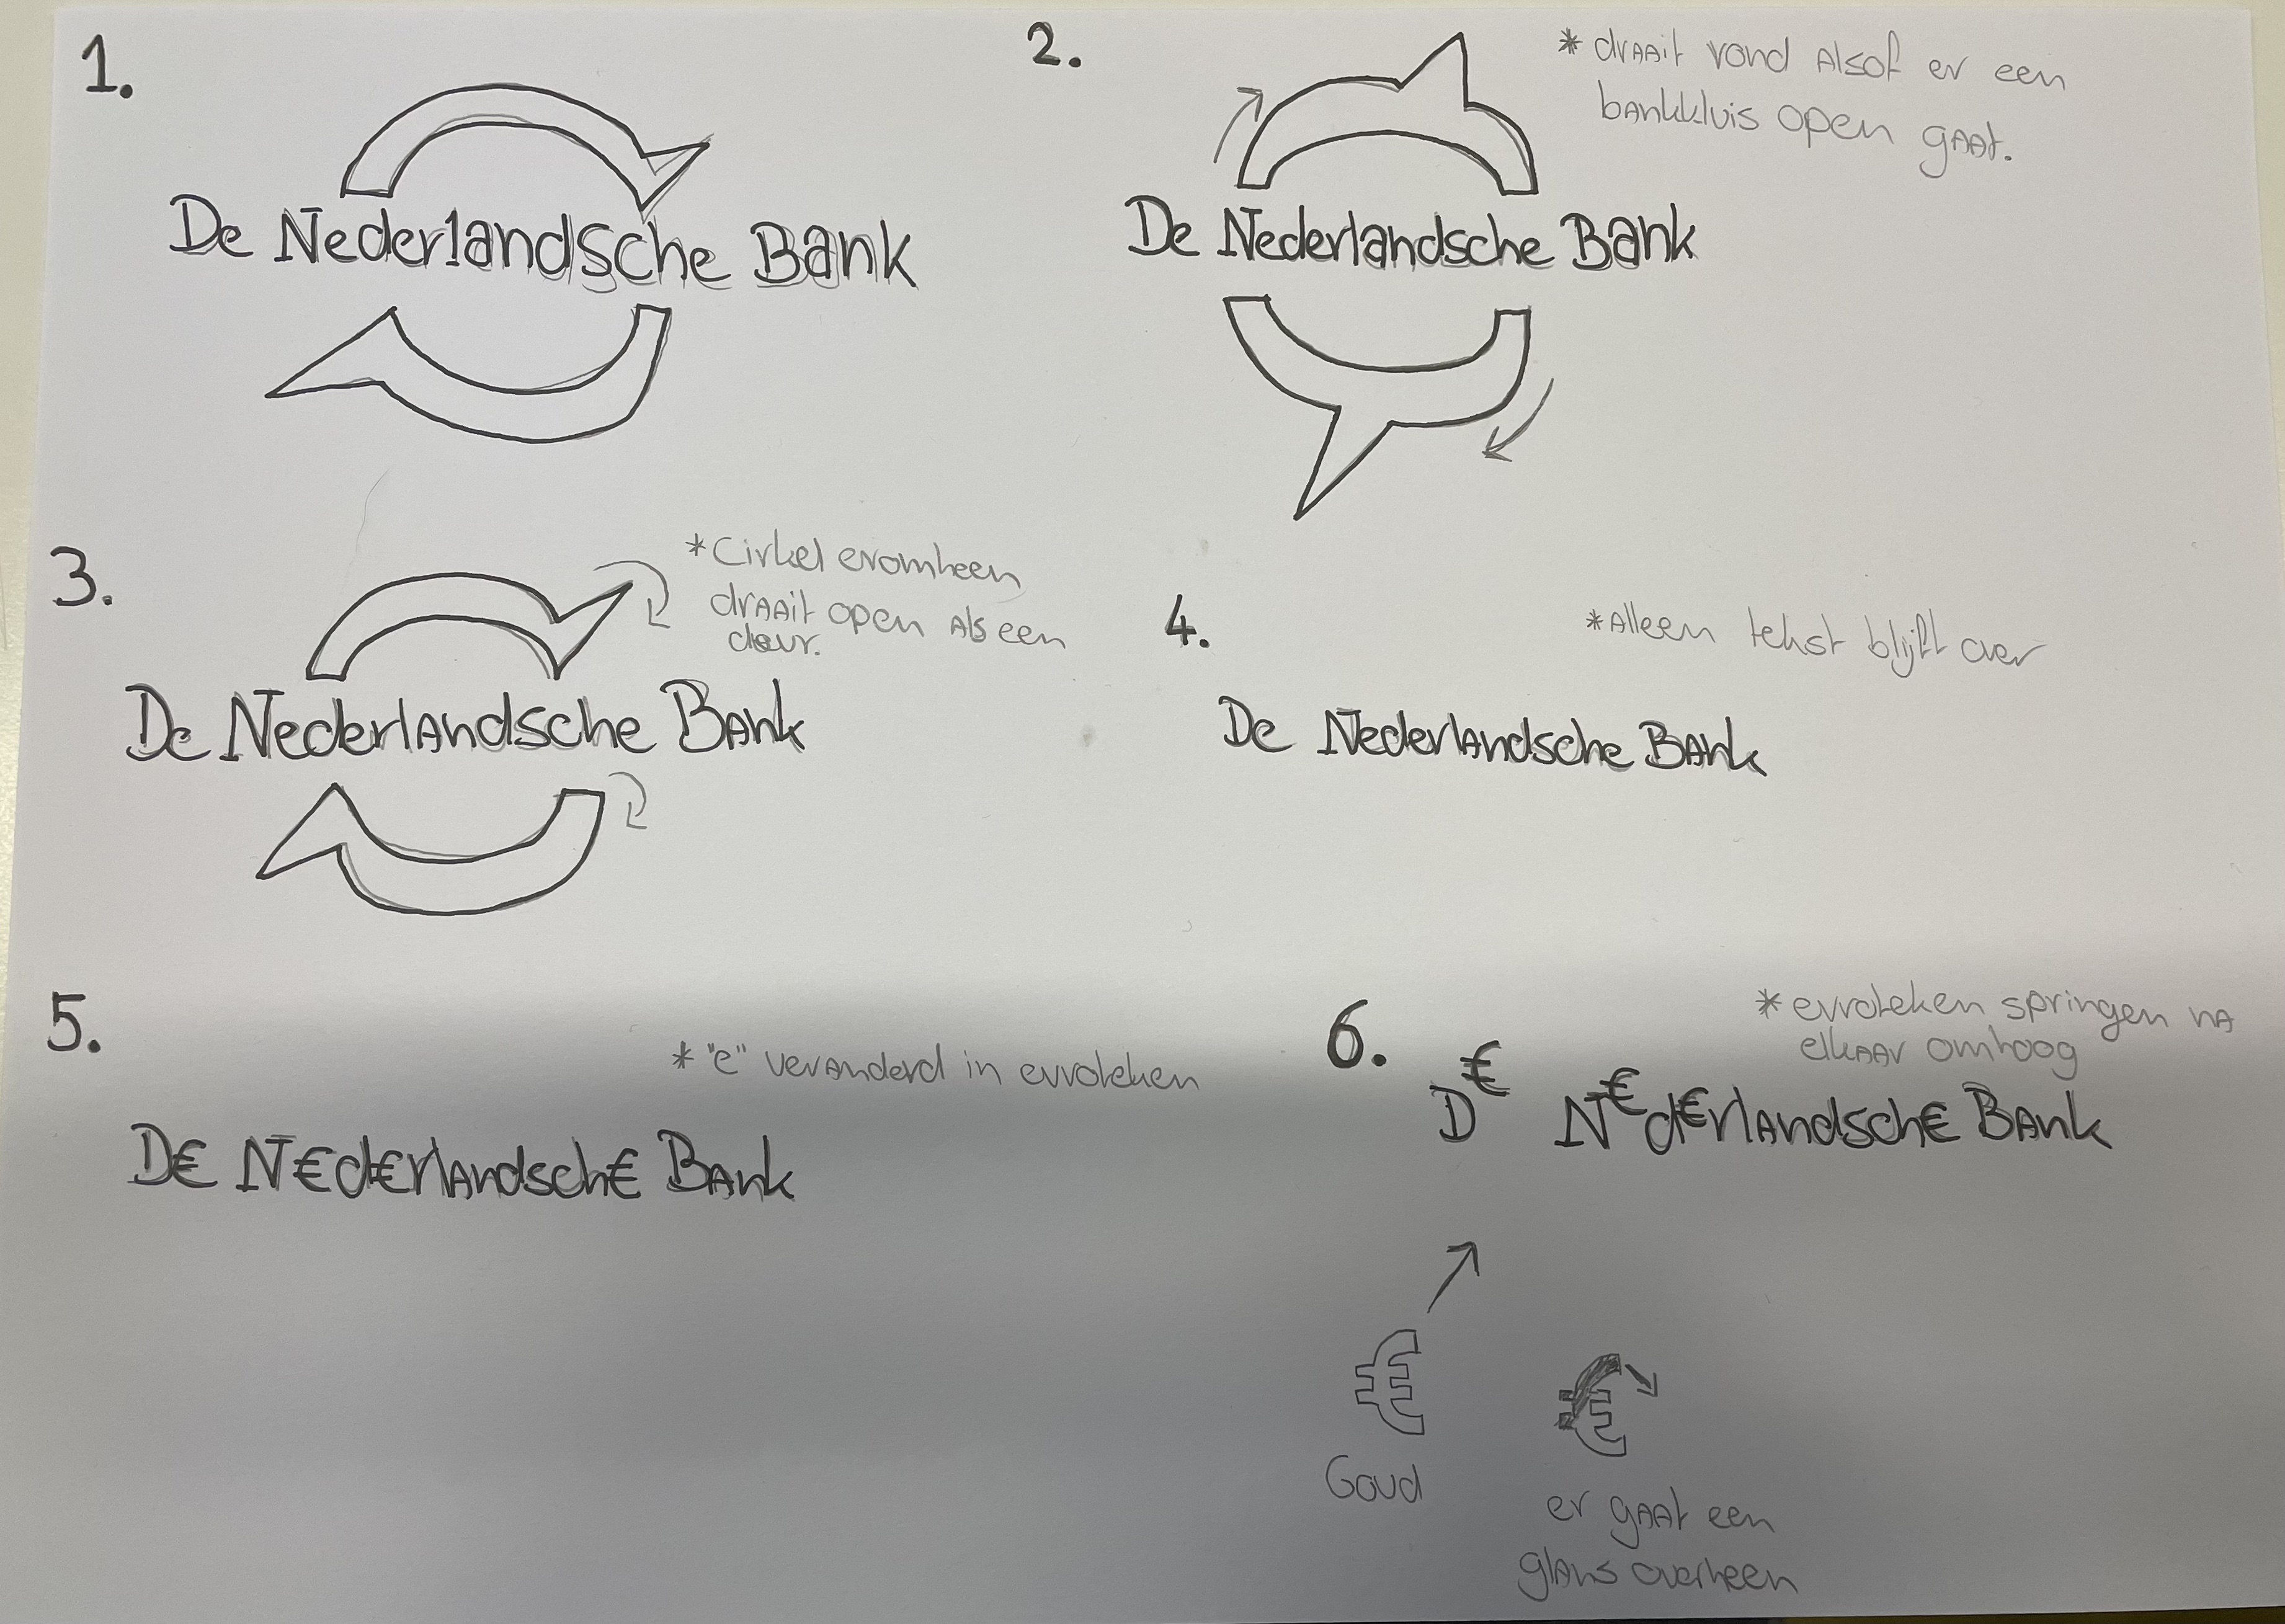 1.
De Nederlandsche Bank
2.
* draait rond alsof er een
bankkluis open gaat.
De Nederlandsche Bank
3.
* Cirkel eromheen
draait open als een
deur.
De Nederlandsche Bank
4.
* Alleen tekst blijft over
De Nederlandsche Bank
5.
* "e" veranderd in euroteken
D€ N€d€rlandsch€ Bank
6.
* euroteken springen na
elkaar omhoog
D€ N€d€rlandsch€ Bank
€ €
Goud
er gaat een
glans overheen